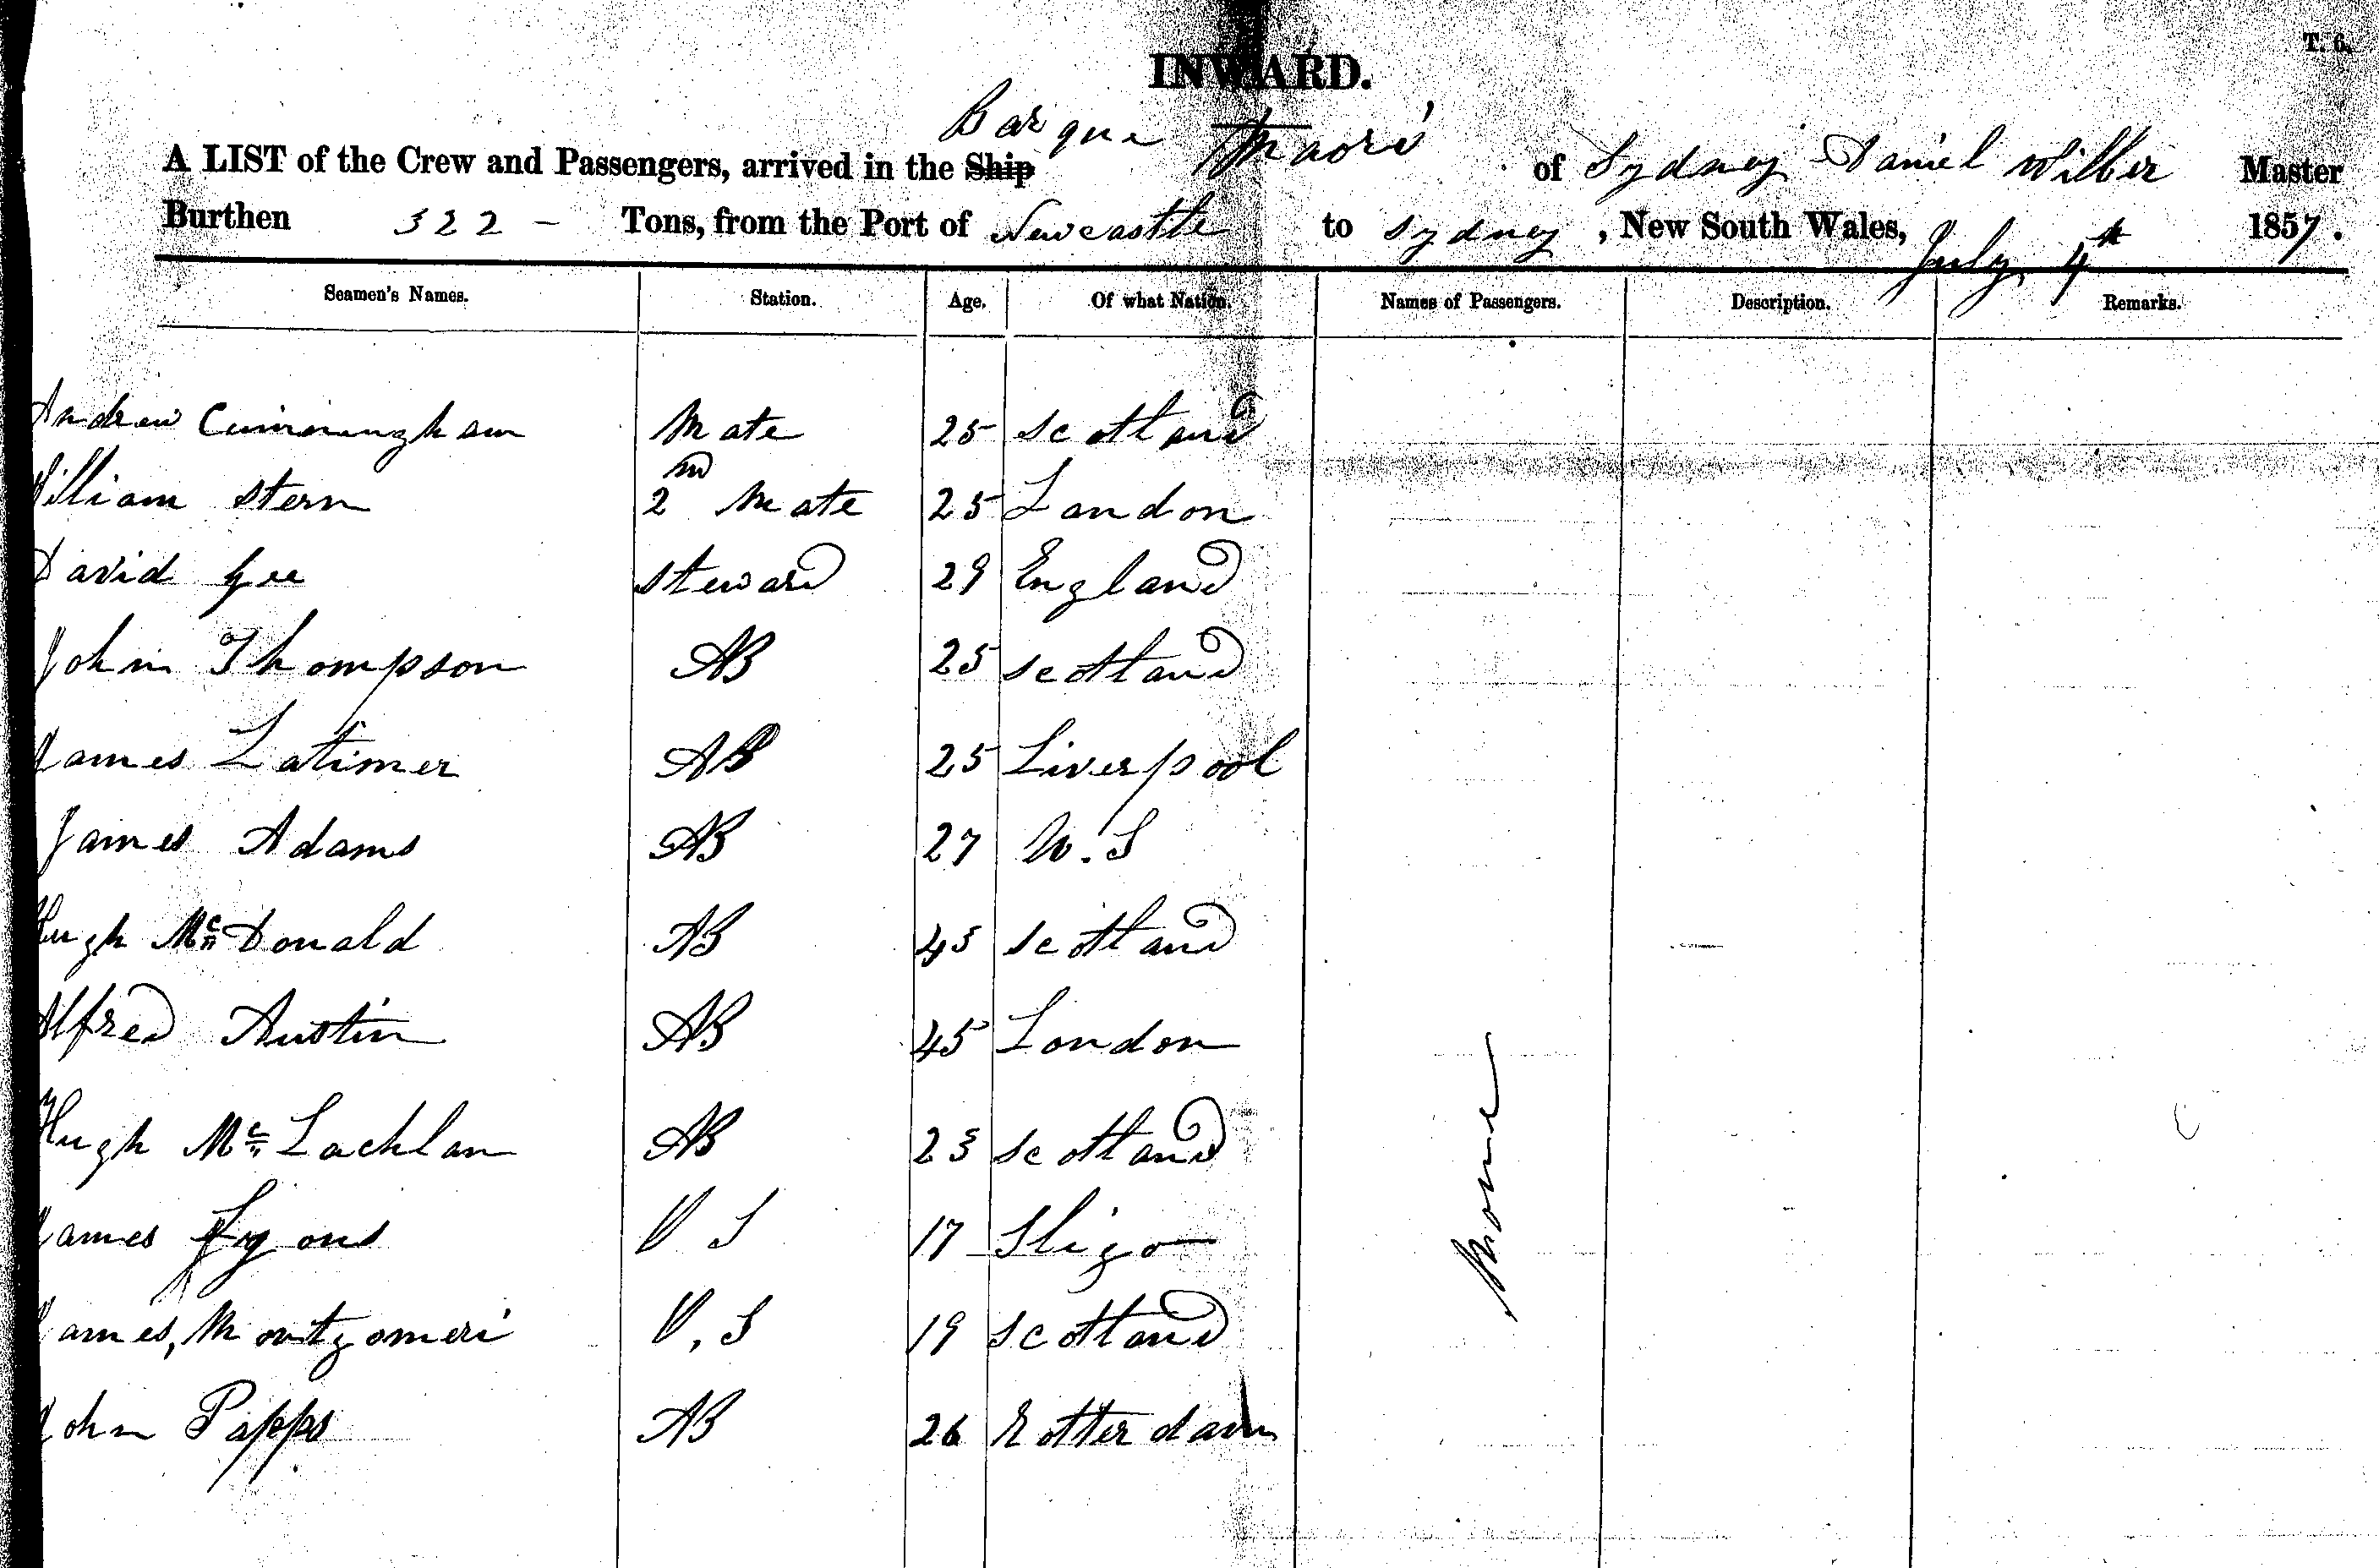 T. 6.
INWARD.
A LIST of the Crew and Passengers, arrived in the Ship Barque Maori of Sydney Daniel Wilber Master
Burthen 322 - Tons, from the Port of Newcastle to Sydney, New South Wales, July 4th 1857.
Seamen's Names. Station. Age. Of what Nation. Names of Passengers. Description. Remarks.
Andrew Cunningham Mate 25 Scotland
William Stern 2nd Mate 25 London
David Gee Steward 29 England
John Thompson AB 25 Scotland
James Latimer AB 25 Liverpool
James Adams AB 27 U.S
Hugh McDonald AB 45 Scotland
Alfred Austin AB 45 London
Hugh McLachlan AB 23 Scotland
James Lyons O S 17 Sligo
James, Montgomeri O.S 19 Scotland
John Papps AB 26 Rotterdam
None